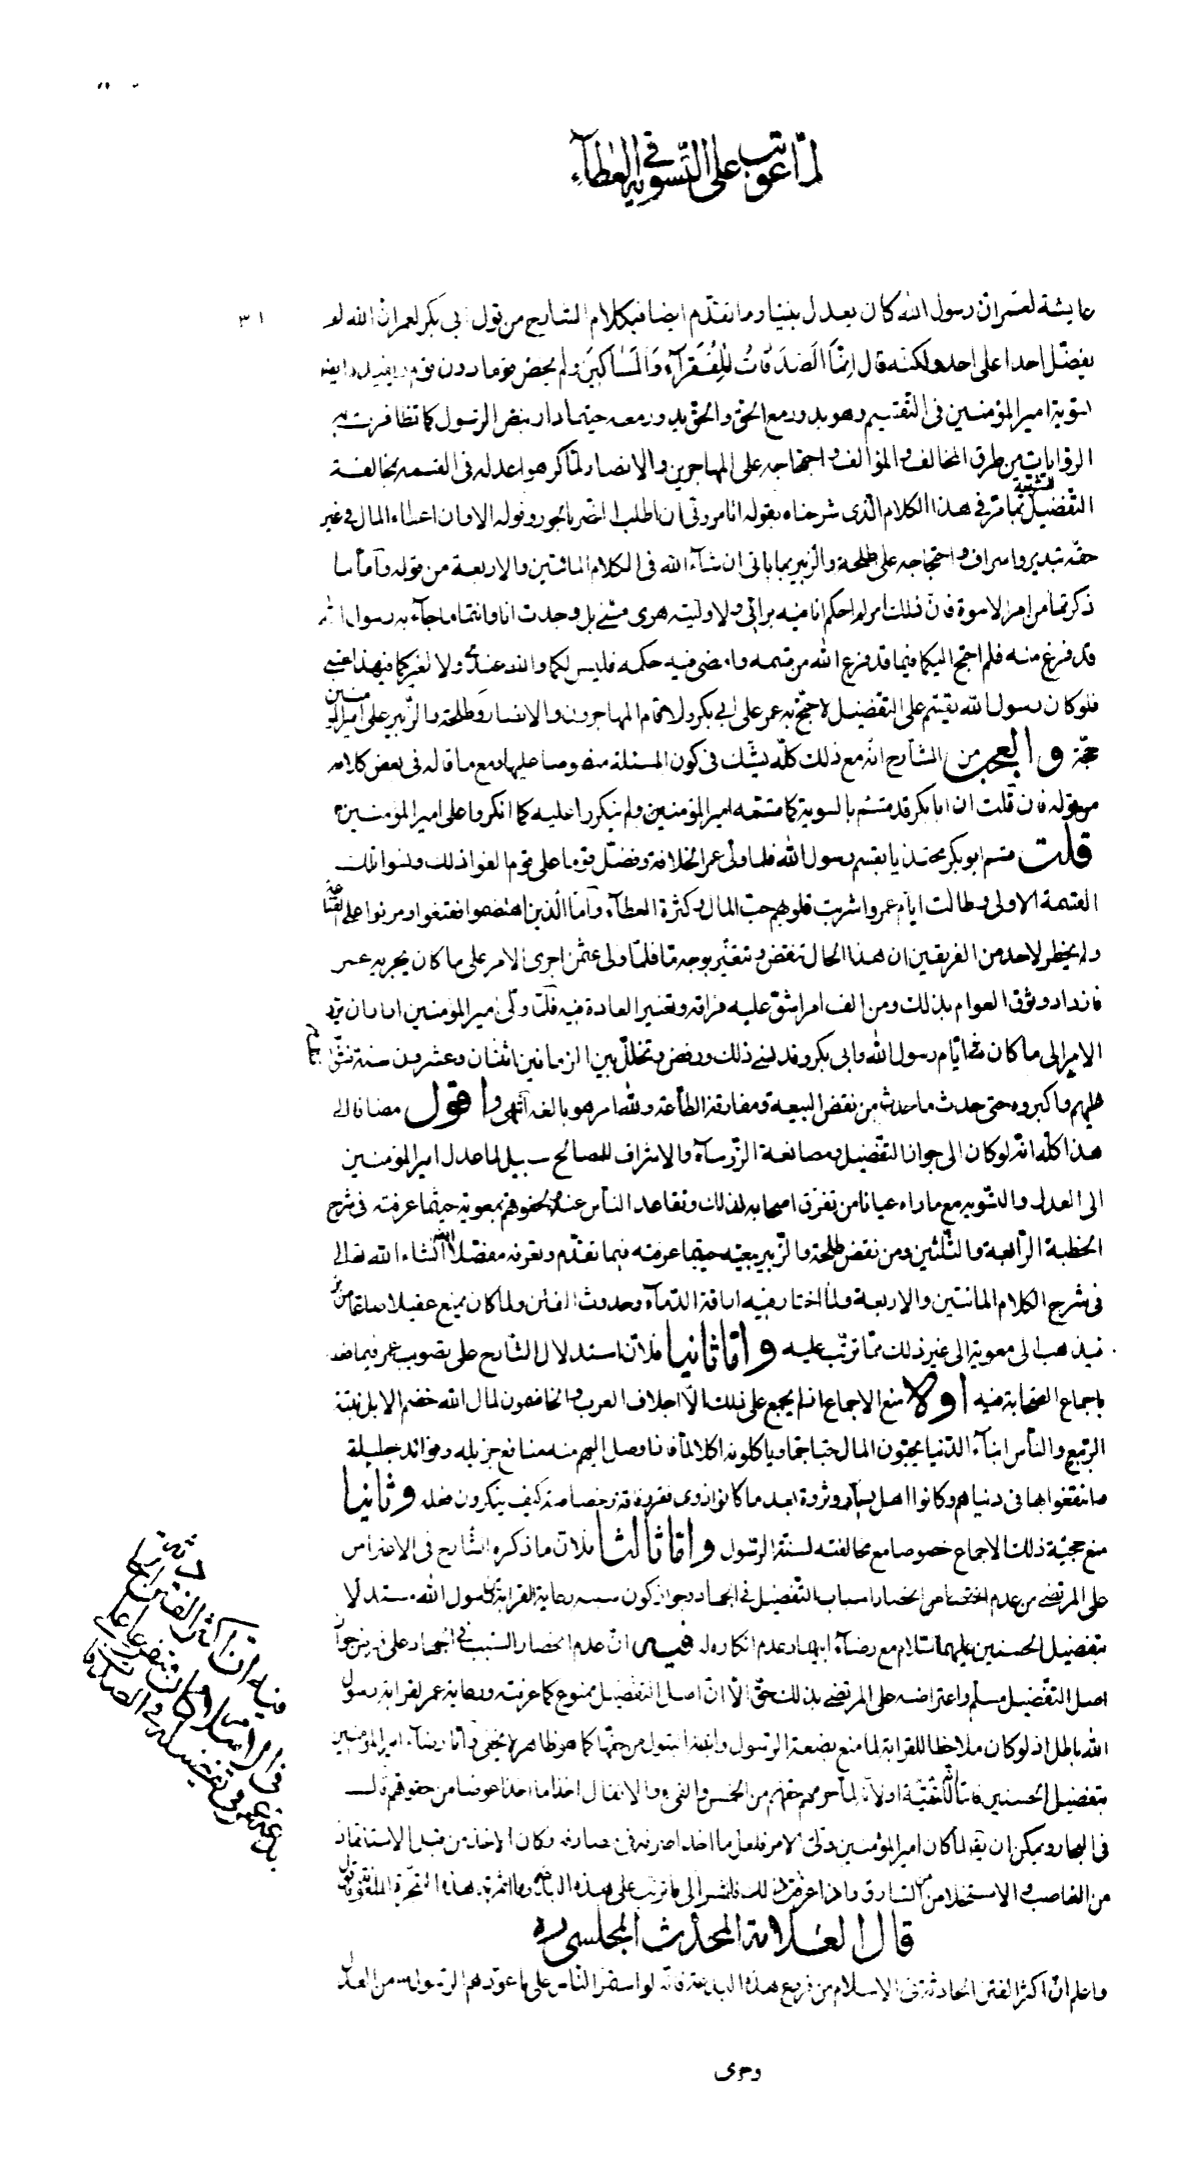 لمّا عوتب على التّسوية في العطآء
٣١
عايشة لعمران رسول الله كان يعدل بيننا وما تقدّم ايضا في كلام الشارح من قول ابي بكر لعمر انّ الله لم
يفضّل احدا على احد ولكنّه قال اِنَّمَا الصَّدَقاتُ لِلْفُقَرآءِ وَالمَسٰاكينَ ولم يخصّ قوما دون قوم ويفيده ايضا
تسوية امير المؤمنين في التّقسيم وهو يدور مع الحقّ والحقّ يدور معه حيثما دار بنصّ الرسول كما تظافرت به
الرّوايات من طرق المخالف والمؤالف واحتجاجه على المهاجرين والانصار لمّا كرهوا عدله في القسمة بمخالفة
التّفضيل للسّنّة بما مرّ في هذا الكلام الّذي شرحناه بقوله اتامروني ان اطلب النصر بالجور وقوله الا وان اعطاء المال في غير
حقّه تبذير واسراف واحتجاجه على طلحة والزّبير بما ياتي ان شآء الله في الكلام المائتين والاربعة من قوله وامّا ما
ذكرتما من امر الاسوة فانّ ذلك امر لم احكم انا فيه برائي ولا وليته هوى منّي بل وجدت انا وانتما ما جآء به رسول الله
قد فرغ منه فلم احتج اليكما فيما قد فرغ الله من قسمه وامضى فيه حكمه فليس لكما والله عندي ولا لغيركما في هذا عتبى
فلو كان رسول الله يقسّم على التّفضيل لاحتجّ به عمر على ابي بكر ولاقام المهاجرون والانصار وطلحة والزّبير على امير المؤمنين
حجّة والعجب من الشّارح انّه مع ذلك كلّه يشكّ في كون المسئلة منصوصا عليها ومع ما قاله في بعض كلامه
من قوله فان قلت ان ابا بكر قد قسّم بالسوية كما قسّمه امير المؤمنين ولم ينكروا عليه كما انكروا على امير المؤمنين
قلت قسم ابو بكر محتذيا بقسم رسول الله فلما ولّى عمر الخلافة وفضّل قوما على قوم الفوا ذلك ونسوا تلك
القسمة الاولى وطالت ايّام عمر واشربت قلوبهم حبّ المال وكثرة العطآء وامّا الّذين اهتضموا فقنعوا ومرنوا على القناعة
ولم يخطر لاحد من الفريقين ان هذا الحال تنقض وتتغيّر بوجه مّا فلمّا ولى عثمن اجرى الامر على ما كان يجريه عمر
فازداد وثوق العوام بذلك ومن الف امرا شقّ عليه فراقه وتغيير العادة فيه فلمّا ولّى امير المؤمنين اراد ان يردّ
الامر الى ما كان في ايّام رسول الله وابي بكر وقد نسى ذلك ورفض وتخلّل بين الزمانين اثنتان وعشرون سنة فشقّ ذلك
عليهم واكبروه حتى حدث ما حدث من نقض البيعة ومفارقة الطّاعة ولله امر هو بالغه انتهى واقول مضافا الى
هذا كلّه انّه لو كان الى جواز التّفضيل ومصانعة الرّؤسآء والاشراف للمصالح سبيل لما عدل امير المؤمنين
الى العدل والتّسوية مع ما راه عيانا من تفرّق اصحابه لذلك وتقاعد النّاس عنه ولحوقهم بمعوية حيثما عرفته في شرح
الخطبة الرّابعة والثّلثين ومن نقض طلحة والزّبير بيعته حيثما عرفته فيما تقدّم وتعرفه مفصّلا انشاء الله تعالى
في شرح الكلام المائتين والاربعة ولما اختار فيه اراقة الدّمآء وحدوث الفتن ولما كان يمنع عقيلا صاعا من برّ
فيذهب الى معوية الى غير ذلك ممّا ترتّب عليه وامّا ثانيا فلانّ استدلال الشّارح على تصويب عمر فيما فعله
باجماع الصّحابة فيه اولا منع الاجماع اذ لم يجمع على ذلك الّا اجلاف العرب والخاضمون لمال الله خضم الابل نبتة
الرّبيع والنّاس ابنآء الدّنيا يحبّون المال حبّا جمّا وياكلونه اكلا لمّا فاذا وصل اليهم منه منافع جزيلة وفوائد جليلة
فانتفعوا بها في دنياهم وكانوا اهل يسار وثروة بعد ما كانوا ذوي فقر وفاقة وخصاصة كيف ينكرون فعله وثانيا
منع حجيّة ذلك الاجماع خصوصا مع مخالفته لسنّة الرّسول وامّا ثالثا فلانّ ما ذكره الشّارح في الاعتراض
على المرتضى من عدم انحصار اسباب التّفضيل في الجهاد وجواز كون سببه رعاية القرابة لرسول الله مستدلا
بتفضيل الحسنين عليهما السّلام مع رضآء ابيهما وعدم انكاره له فيه انّ عدم انحصار السّبب في الجهاد على فرض جواز
اصل التّفضيل مسلّم واعتراضه على المرتضى بذلك حقّ الّا انّ اصل التفضيل ممنوع كما عرفته ورعاية عمر لقرابة رسول
الله باطل اذ لو كان ملاحظا للقرابة لما منع بضعة الرّسول وابنته البتول من حقّها كما هو ظاهر لا يخفى وامّا رضآء امير المؤمنين
بتفضيل الحسنين فامّا للتّقيّة او لانّه لمّا حرمهم حقّهم من الخمس والفيء والانفال اخذا ما اخذا عوضا من حقوقهم قال
في البحار ويمكن ان يقال لما كان امير المؤمنين وليّ الامر فلعل ما اخذا صرفه في مصارفه وكان الاخذ من قبيل الاستنقاذ
من الغاصب والاستخلاص من السّارق واذا عرفت ذلك فلنشر الى ما ترتّب على هذه البدعة وما اثمرته هذه الشّجرة الملعونة
قال العلامة المحدّث المجلسي ره
واعلم انّ اكثر الفتن الحادثة في الاسلام من فروع هذه البدعة فانّه لو استمرّ النّاس على ما عوّدهم الرّسول من العدل
وجرى
فيه انّ اكثر الفتن الحادثة
في الاسلام كانت متفرعة على
بدعة عمر في تفضيله في الصدقات